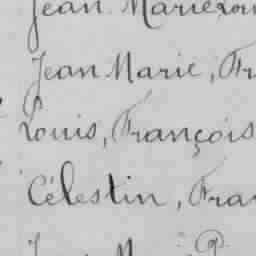 Jean Marie
Jean Marie, Fr
Louis, François
Célestin, Fra